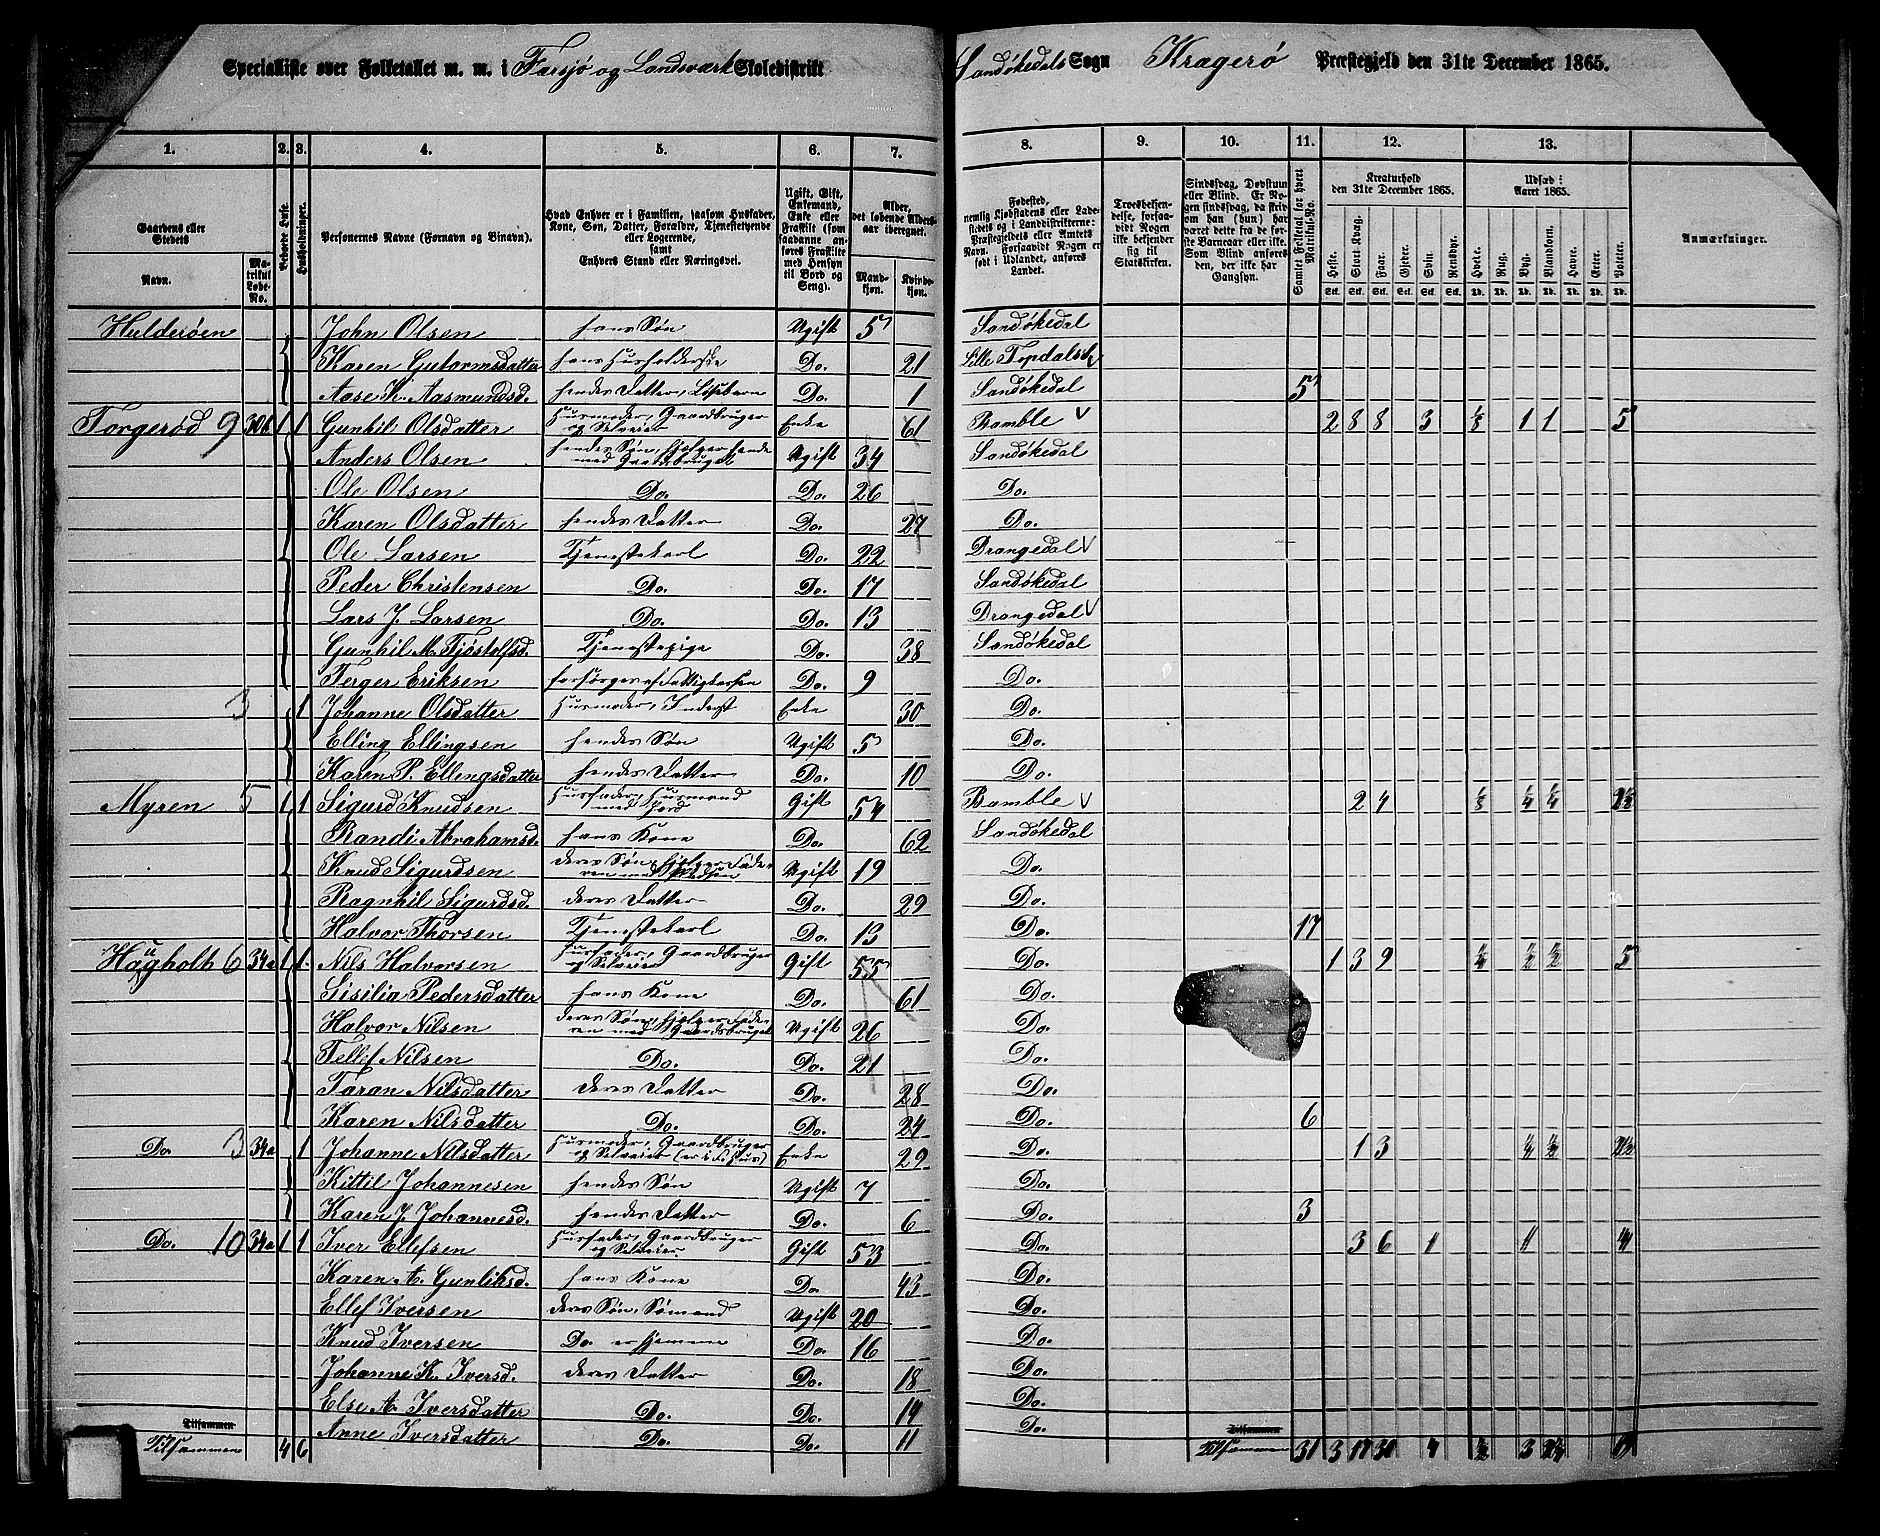 Specialliste over Folketallet m. m. i Farsjø og Landsværk Skoledistrikt Sandøkedals Sogn Kragerø Præstegjeld den 31te December 1865.
1. 2. 3. 4. 5. 6. 7. 8. 9. 10. 11. 12. 13.
Gaardens eller Stedets Navn. Matrikul Løbe-No. Beboede Huse. Husholdninger. Personernes Navne (Fornavn og Binavn). Hvad Enhver er i Familien, saasom Husfader, Kone, Søn, Datter, Forældre, Tjenestetyende eller Logerende, samt Enhvers Stand eller Næringsvei. Ugift, Gift, Enkemand, Enke eller Fraskilt (som saadanne anføres Fraskilte med Hensyn til Bord og Seng). Alder, det løbende Aldersaar iberegnet. Mandkjøn. Kvindekjøn. Fødested, nemlig Kjøbstadens eller Ladestedets og i Landdistrikterne: Præstegjeldets eller Amtets Navn. Forsaavidt Nogen er født i Udlandet, anføres Landet. Troesbekjendelse, forsaavidt Nogen ikke bekjender sig til Statskirken. Sindssvag, Døvstum eller Blind. Er Nogen sindssvag, da skriv om han (hun) har været dette fra de første Barneaar eller ikke. Som Blind anføres den, der ikke har Gangsyn. Samlet Folketal for hvert Matrikul-No. Kreaturhold den 31te December 1865. Heste. Stort Kvæg. Faar. Gjeder. Sviin. Rensdyr. Udsæd i Aaret 1865. Hvede. Rug. Byg. Blandkorn. Havre. Erter. Poteter. Anmærkninger.
Hulderøen John Olsen hans Søn Ugift 5 Sandøkedal
Karen Gutormsdatter hans Husholderske Do. 21 Lille Topdals
Aase K. Aasmundsd. hendes Datter, Løsbarn Do. 1 Sandøkedal 5
Torgerød 9 30b 1 1 Gunhil Olsdatter Husmoder, Gaardbruger og Selveier Enke 61 Bamble 2 8 8 3 1/8 1 1 5
Anders Olsen hendes Søn, hjælper hende med Gaardbruget Ugift 34 Sandøkedal
Ole Olsen Do. Do. 26 Do.
Karen Olsdatter hendes Datter Do. 27 Do.
Ole Larsen Tjenestekarl Do. 22 Drangedal
Peder Christensen Do. Do. 17 Sandøkedal
Lars J. Larsen Do. Do. 13 Drangedal
Gunhil M. Tjøstolfsd. Tjenestepige Do. 38 Sandøkedal
Terger Eriksen forsørges af Fattigkassen Do. 9 Do.
3 1 Johanne Olsdatter Husmoder, Inderst Enke 30 Do.
Elling Ellingsen hendes Søn Ugift 5 Do.
Karen P. Ellingsdatter hendes Datter Do. 10 Do.
Myren 5 1 1 Sigurd Knudsen Husfader, Husmand med Jord Gift 54 Bamble 2 4 1/8 1/4 1/4 2 1/2
Randi Abrahamsd. hans Kone Do. 62 Sandøkedal
Knud Sigurdsen deres Søn, hjælper Faderen med Pladsen Ugift 19 Do.
Ragnhil Sigurdsd. deres Datter Do. 29 Do.
Halvor Thorsen Tjenestekarl Do. 13 Do. 17
Haugholt 6 34a 1 1 Nils Halvorsen Husfader, Gaardbruger og Selveier Gift 55 Do. 1 3 9 1/4 1/2 1/2 5
Sisilia Pedersdatter hans Kone Do. 61 Do.
Halvor Nilsen deres Søn, hjælper Faderen med Gaardsbruget Ugift 26 Do.
Tellef Nilsen Do. Do. 21 Do.
Taran Nilsdatter deres Datter Do. 28 Do.
Karen Nilsdatter Do. Do. 24 Do. 6
Do. 3 34a 1 Johanne Nilsdatter Husmoder, Gaardbruger og Selveier (er i F. Hus) Enke 29 Do. 1 3 1/4 1/4 2 1/2
Kittil Johannesen hendes Søn Ugift 7 Do.
Karen J. Johannesd. hendes Datter Do. 6 Do. 3
Do. 10 34a 1 1 Iver Ellefsen Husfader, Gaardbruger og Selveier Gift 53 Do. 3 6 1 1 4
Karen A. Gunliksd. hans Kone Do. 43 Do.
Ellef Iversen deres Søn, Sømand Ugift 20 Do.
Knud Iversen Do. er hjemme Do. 16 Do.
Johanne K. Iversd. deres Datter Do. 18 Do.
Else A. Iversdatter Do. Do. 14 Do.
Anne Iversdatter Do. Do. 11 Do.
Tilsammen Tilsammen
Tilsammen 4 6 Tilsammen 31 3 17 30 4 1/2 3